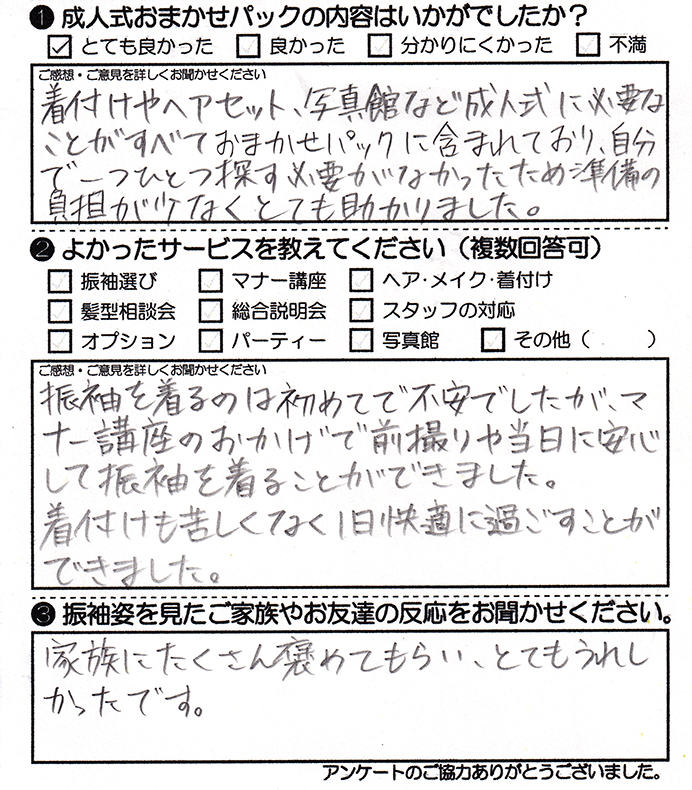 ❶ 成人式おまかせパックの内容はいかがでしたか？
☑ とても良かった □ 良かった □ 分かりにくかった □ 不満
ご感想・ご意見を詳しくお聞かせください
着付けやヘアセット、写真館など成人式に必要な
ことがすべておまかせパックに含まれており、自分
で一つひとつ探す必要がなかったため準備の
負担が少なくとても助かりました。
❷ よかったサービスを教えてください（複数回答可）
□ 振袖選び □ マナー講座 □ ヘア・メイク・着付け
□ 髪型相談会 □ 総合説明会 □ スタッフの対応
□ オプション □ パーティー □ 写真館 □ その他（　　）
ご感想・ご意見を詳しくお聞かせください
振袖を着るのは初めてで不安でしたが、マ
ナー講座のおかげで前撮りや当日に安心
して振袖を着ることができました。
着付けも苦しくなく1日快適に過ごすことが
できました。
❸ 振袖姿を見たご家族やお友達の反応をお聞かせください。
家族にたくさん褒めてもらい、とてもうれし
かったです。
アンケートのご協力ありがとうございました。